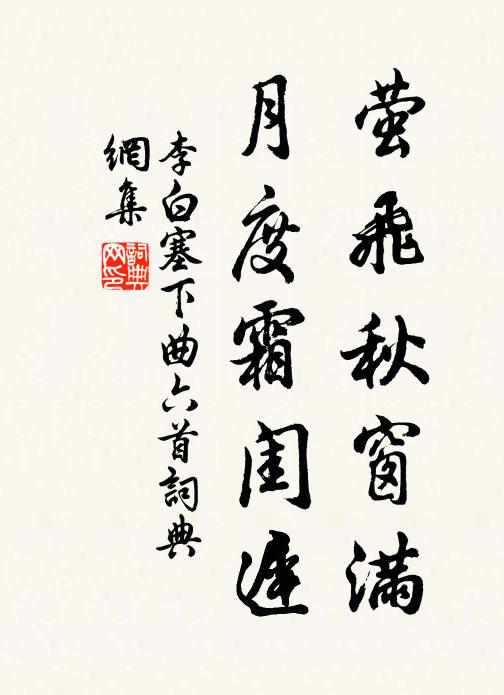 萤飛秋窗满
月度霜闺遲
李白塞下曲六首詞典
網集
詞典
网印